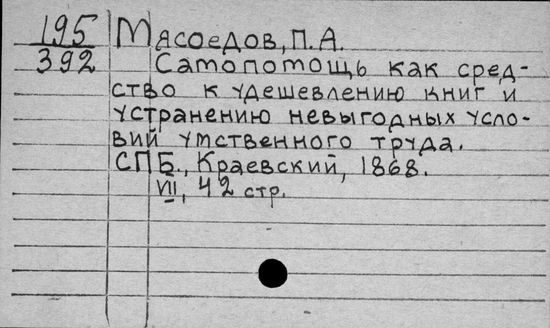 195
392
Мясоедов, П. А.
Самопомощь как сред-
ство к удешевлению книг и
устранению невыгодных усло-
вий умственного труда.
СПБ., Краевский, 1868.
VII, 42 стр.